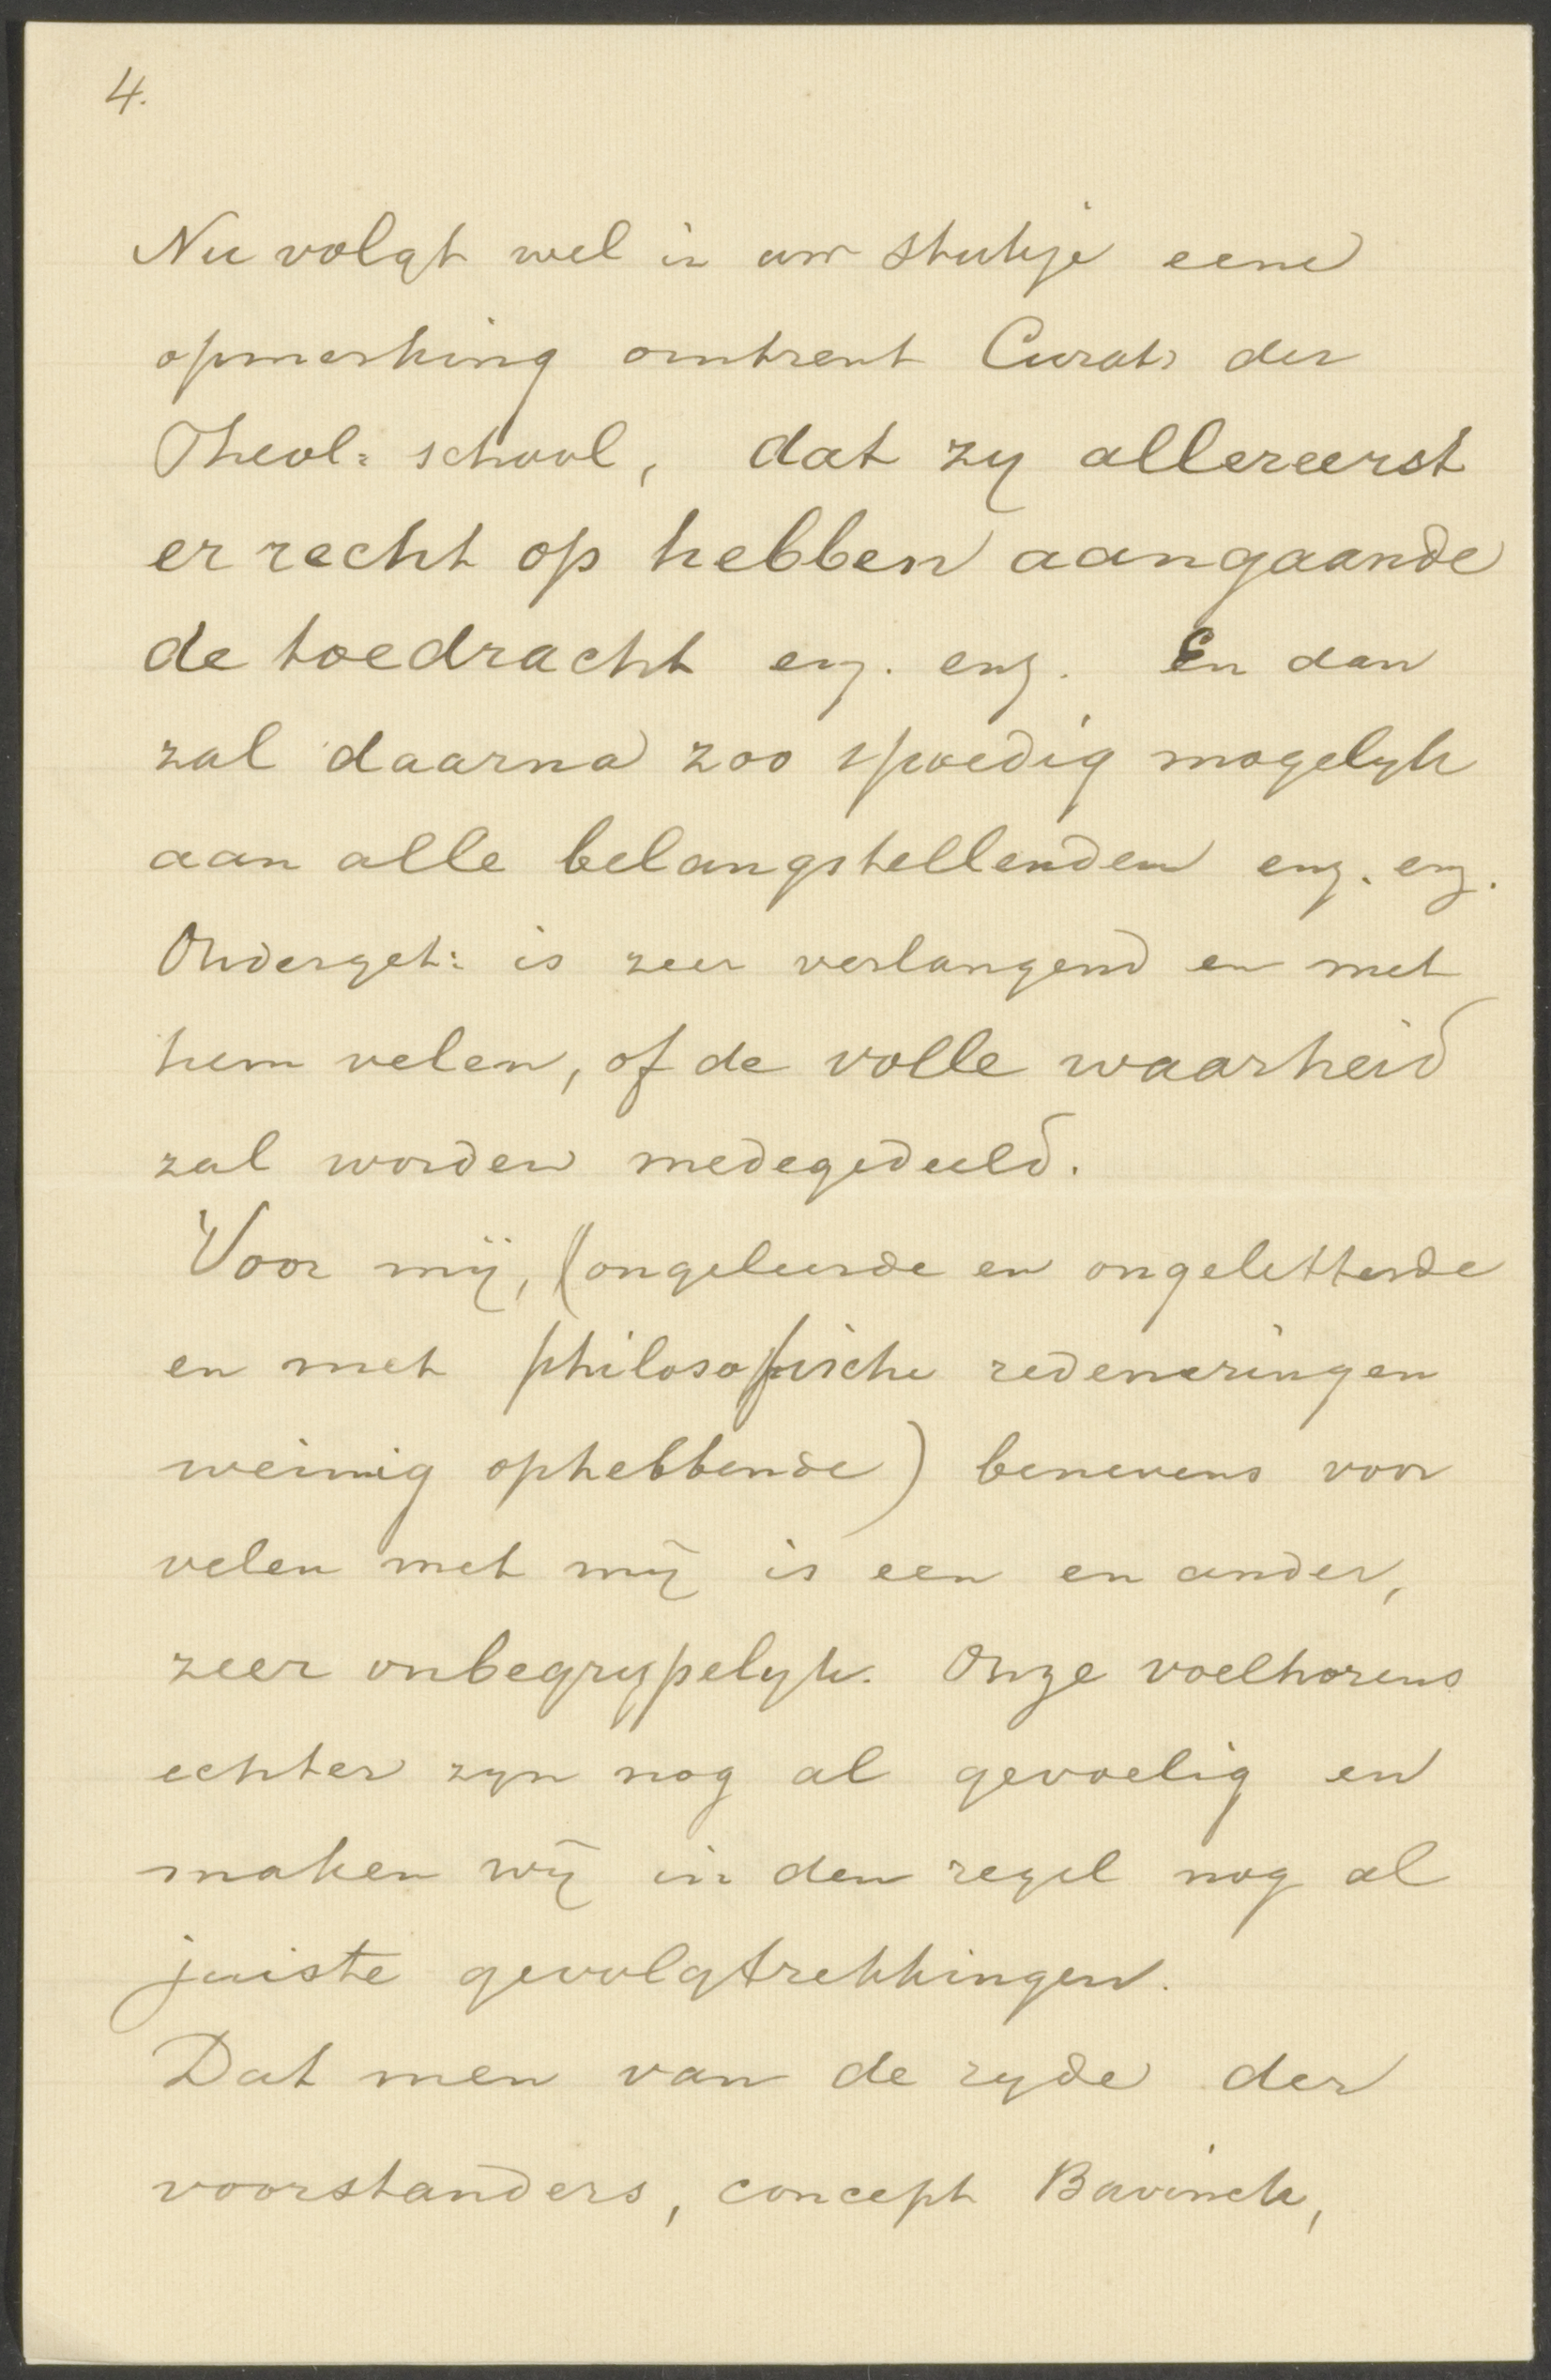 4.
Nu volgt wel in uw stukje eene
opmerking omtrent Curat: der
Theol: school, dat zy allereerst
er recht op hebben aangaande
de toedracht enz. enz. En dan
zal daarna zoo spoedig mogelyk
aan alle belangstellenden enz. enz.
Onderget: is zeer verlangend en met
hem velen, of de volle waarheid
zal worden medegedeeld.
Voor mij, (ongeleerde en ongeletterde
en met philosophische redeneringen
weinnig ophebbende) benevens voor
velen met mij is een en ander,
zeer onbegrypelyk. Onze voelhorens
echter zyn nog al gevoelig en
maken wij in den regel nog al
juiste gevolgtrekkingen.
Dat men van de zyde der
voorstanders, concept Bavinck,